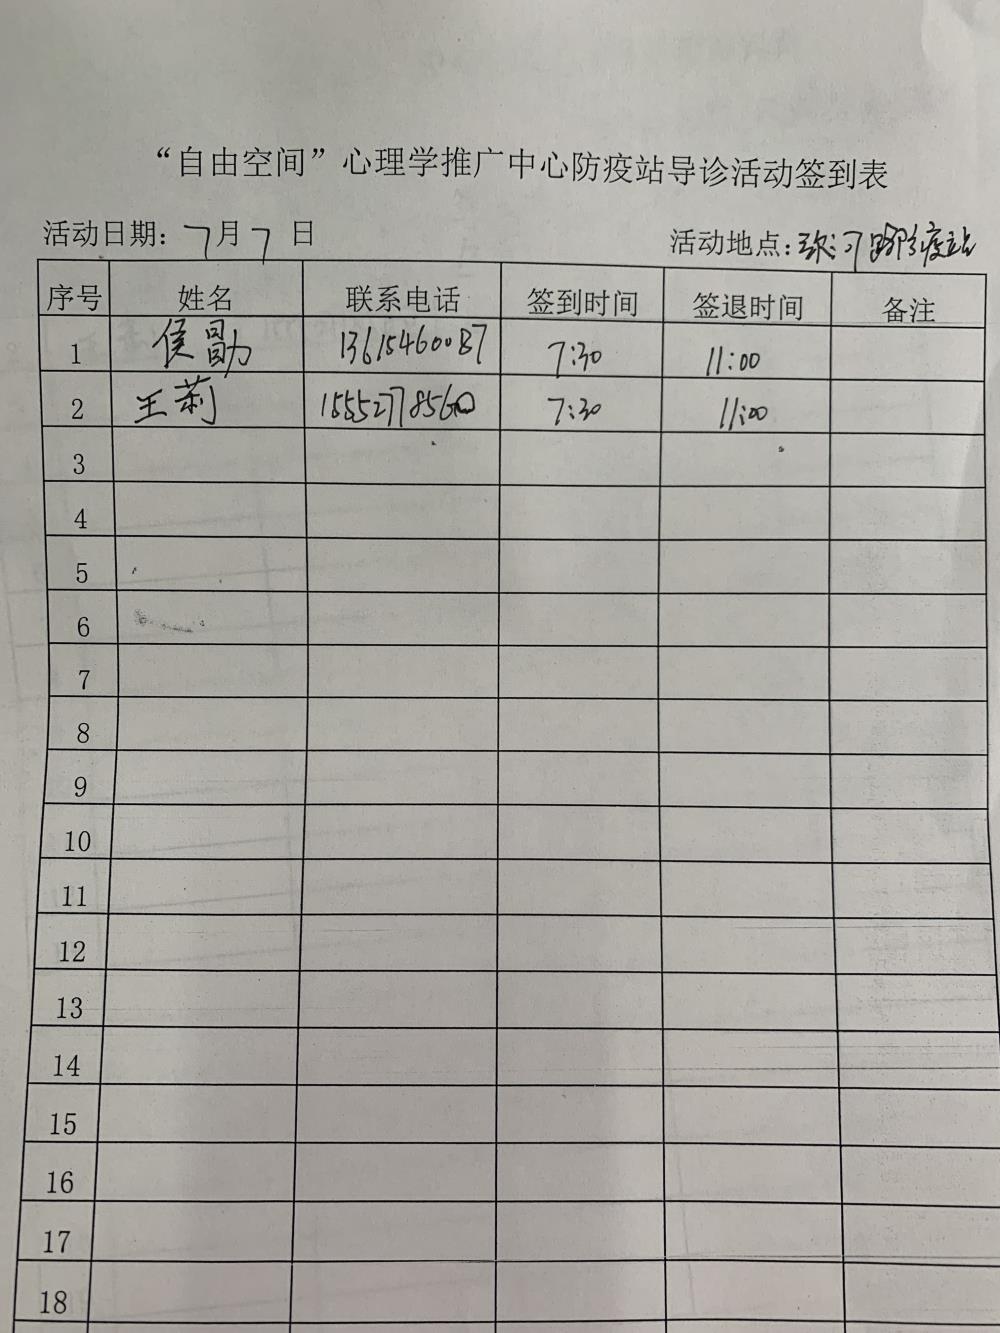 “自由空间”心理学推广中心防疫站导诊活动签到表
活动日期：7月7日 活动地点：弥河路防疫站
序号 姓名 联系电话 签到时间 签退时间 备注
1 侯勖 13615460087 7:30 11:00
2 王莉 15552778560 7:30 11:00
3
4
5
6
7
8
9
10
11
12
13
14
15
16
17
18